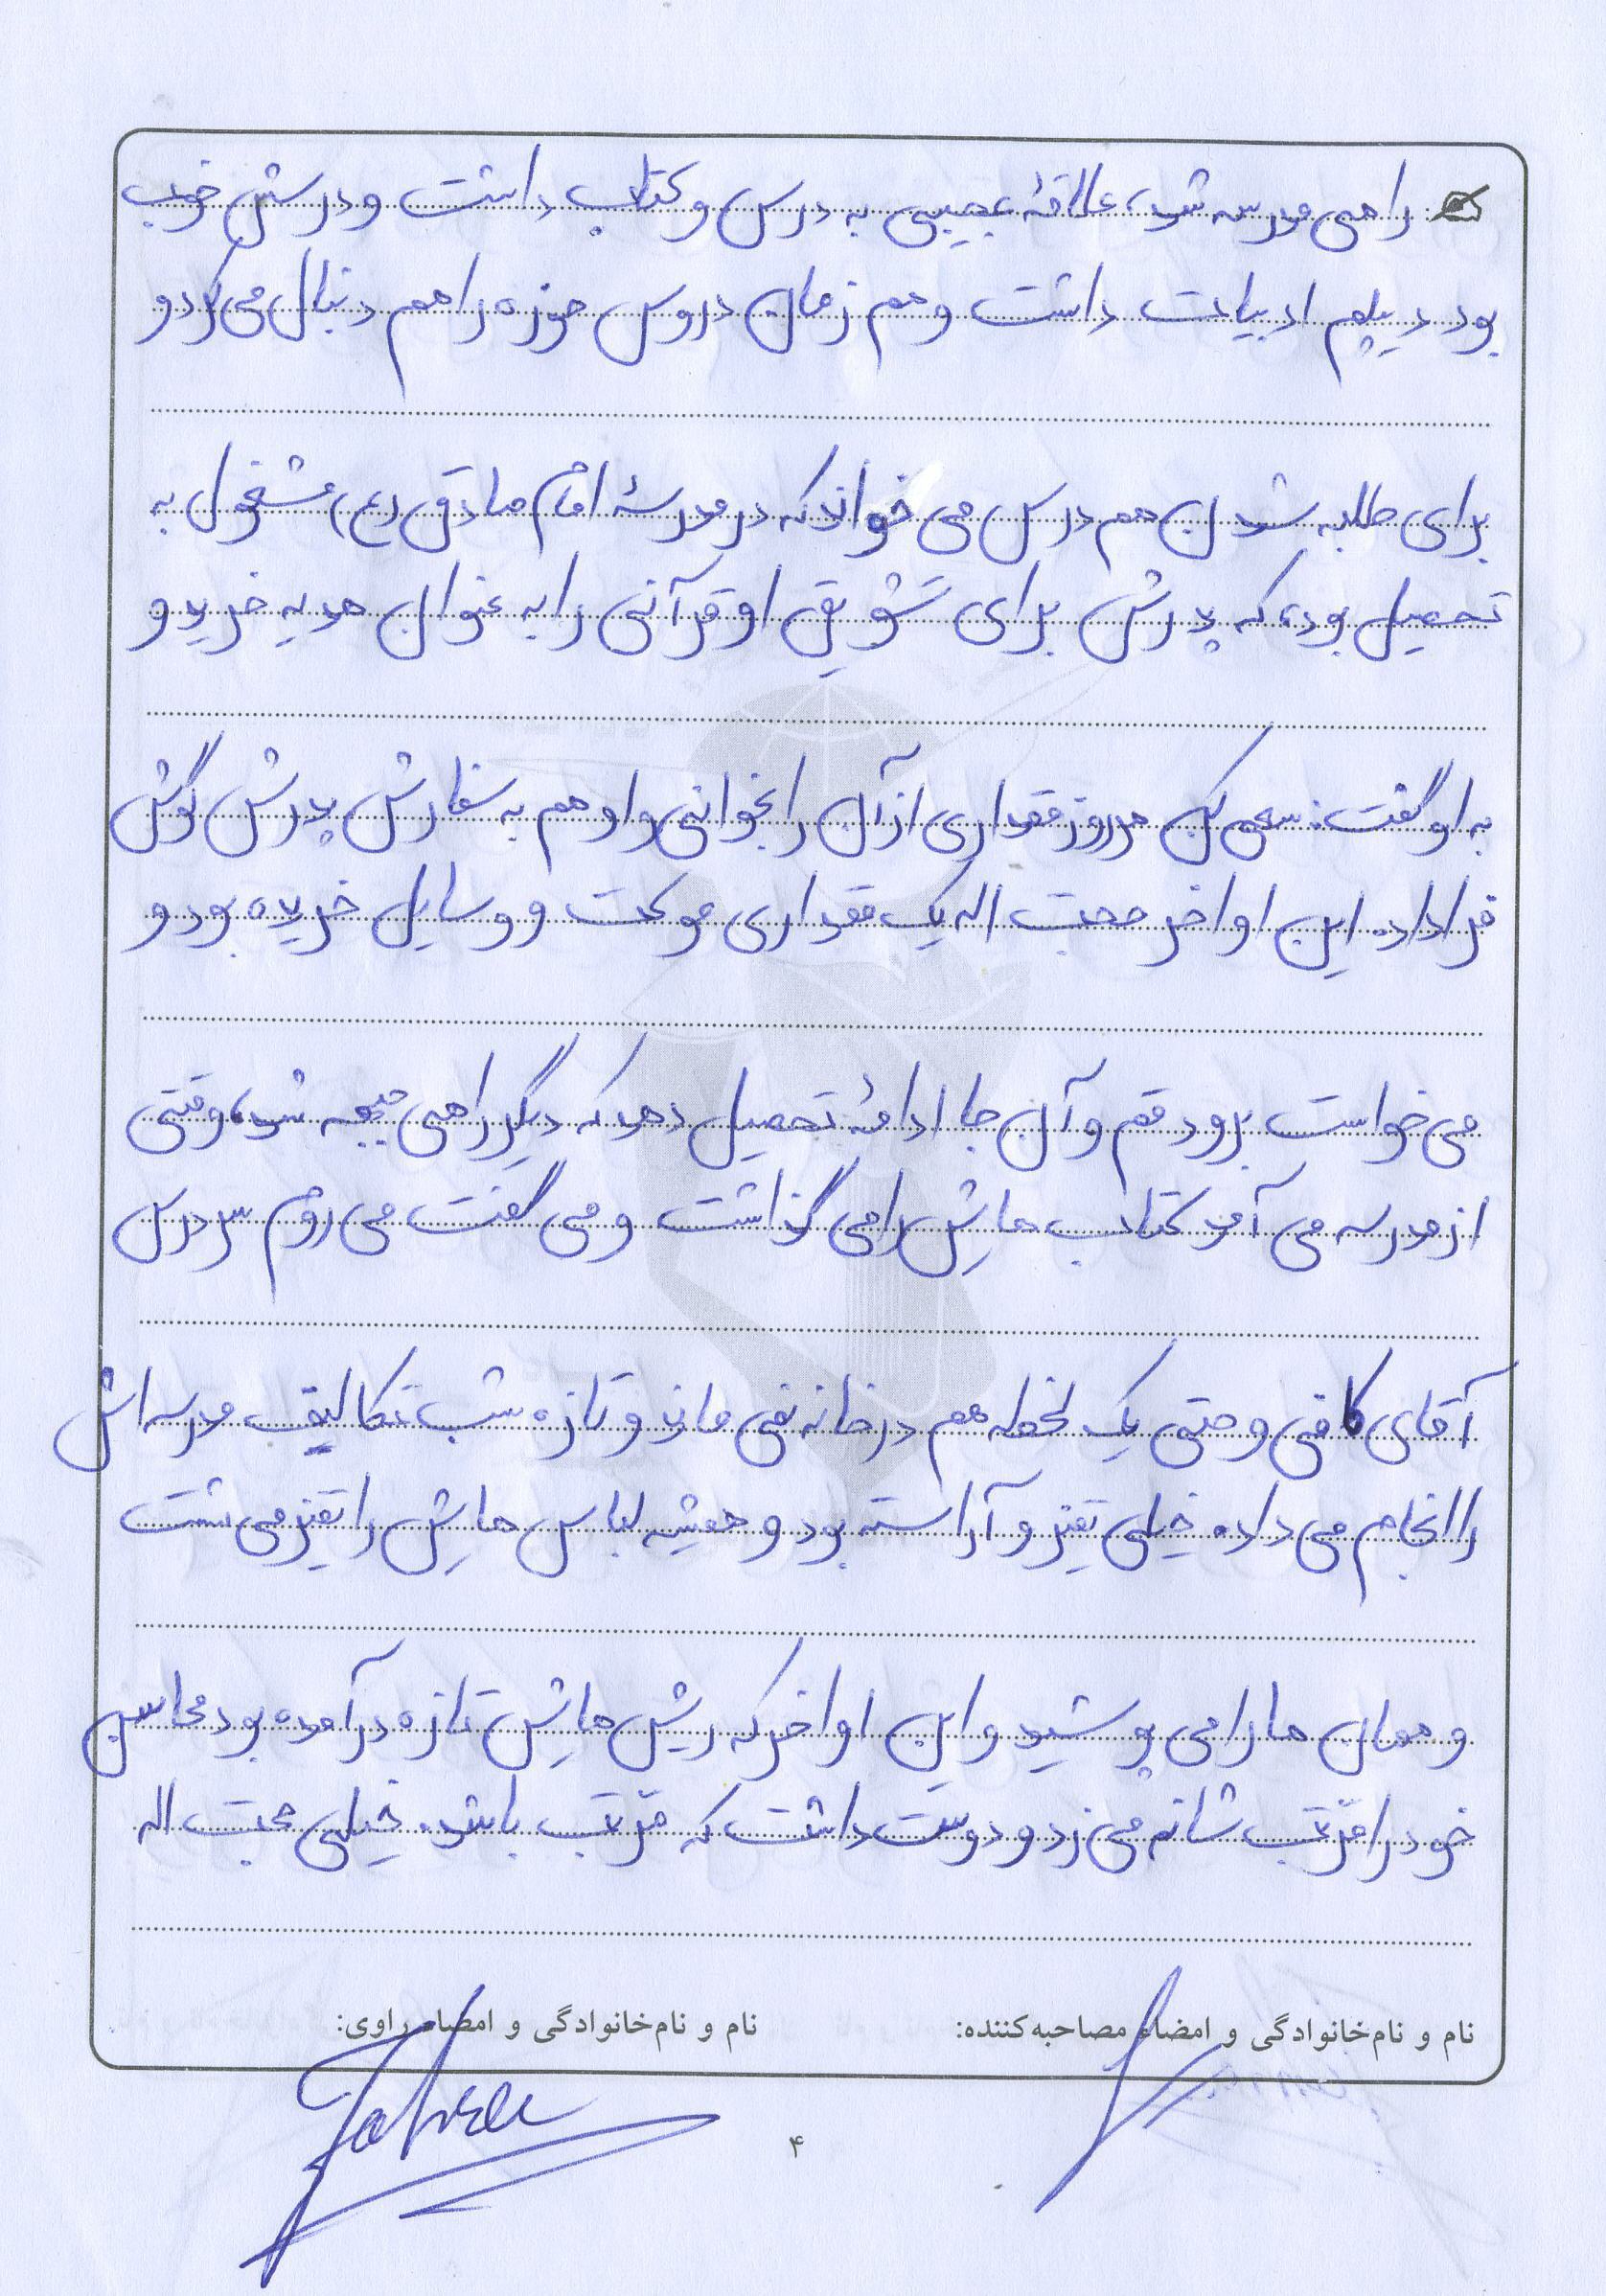 راهی مدرسه شد، علاقهٔ عجیبی به درس و کتاب داشت و درسش خوب
بود دیپلم ادبیات داشت و هم زمان دروس حوزه را هم دنبال می‌کرد و
برای طلبه شدن هم درس می خواند که در مدرسهٔ امام صادق (ع) مشغول به
تحصیل بود، که پدرش برای تشویق او قرآنی را به عنوان هدیه خرید و
به او گفت: سعی کن هر روز مقداری از آن را بخوانی و او هم به سفارش پدرش گوش
فرا داد. این اواخر محبت اله یک مقداری موکت و وسایل خریده بود و
می خواست برود قم و آن جا ادامهٔ تحصیل دهد که دیگر راهی جبهه شد، وقتی
از مدرسه می آمد کتاب هایش را می گذاشت و می گفت می روم سر درس
آقای کافی و حتی یک لحظه هم در خانه نمی ماند و تازه شب تکالیف مدرسه اش
را انجام می داد. خیلی تمیز و آراسته بود و همیشه لباس هایش را تمیز می شست
و همان ها را می پوشید و این اواخر که ریش هایش تازه در آمده بود محاسن
خود را مرّتب شانه می زد و دوست داشت که مرّتب باشد. خیلی محبت اله
نام و نام‌خانوادگی و امضاء مصاحبه‌کننده:
نام و نام‌خانوادگی و امضاء راوی:
۴